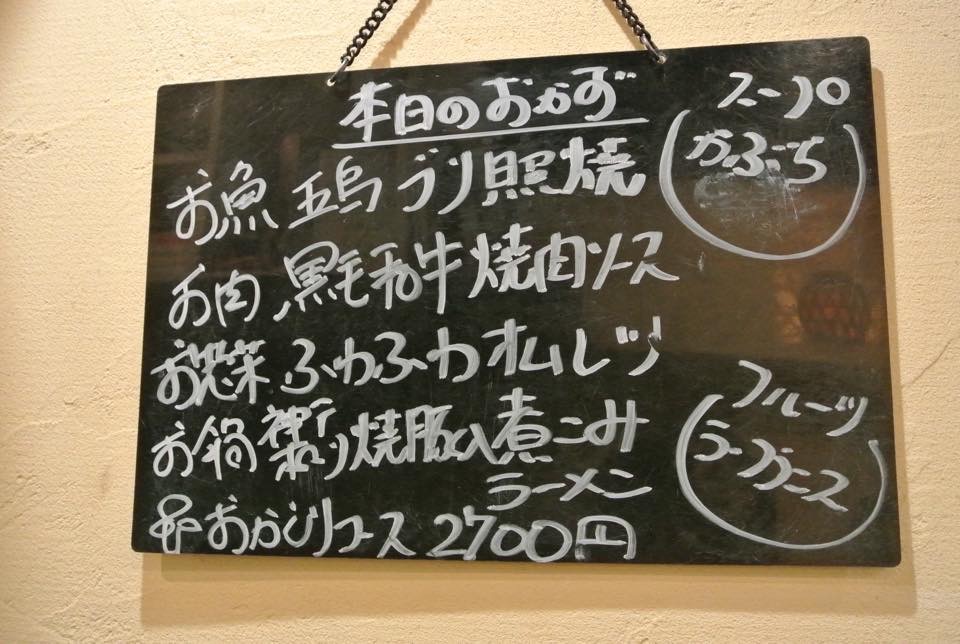 本日のおかず
お魚 五島 ブリ照焼
お肉 黒毛和牛焼肉ソース
お惣菜 ふわふわオムレツ
お鍋 焼豚入煮こみ
ラーメン
コース 2700円
スープ
かぶ
フルーツ